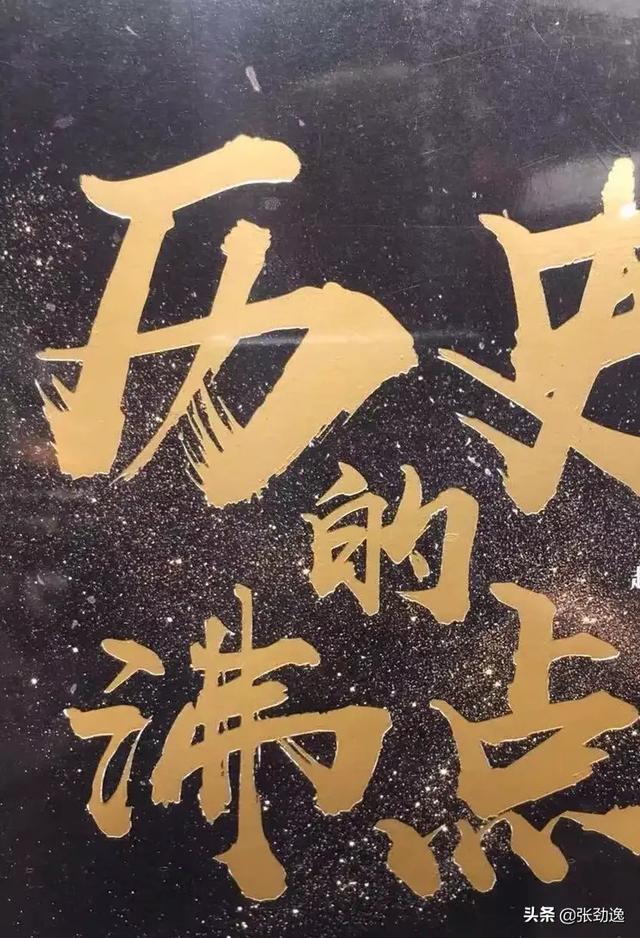 历史
的
沸点
头条 @张劲逸